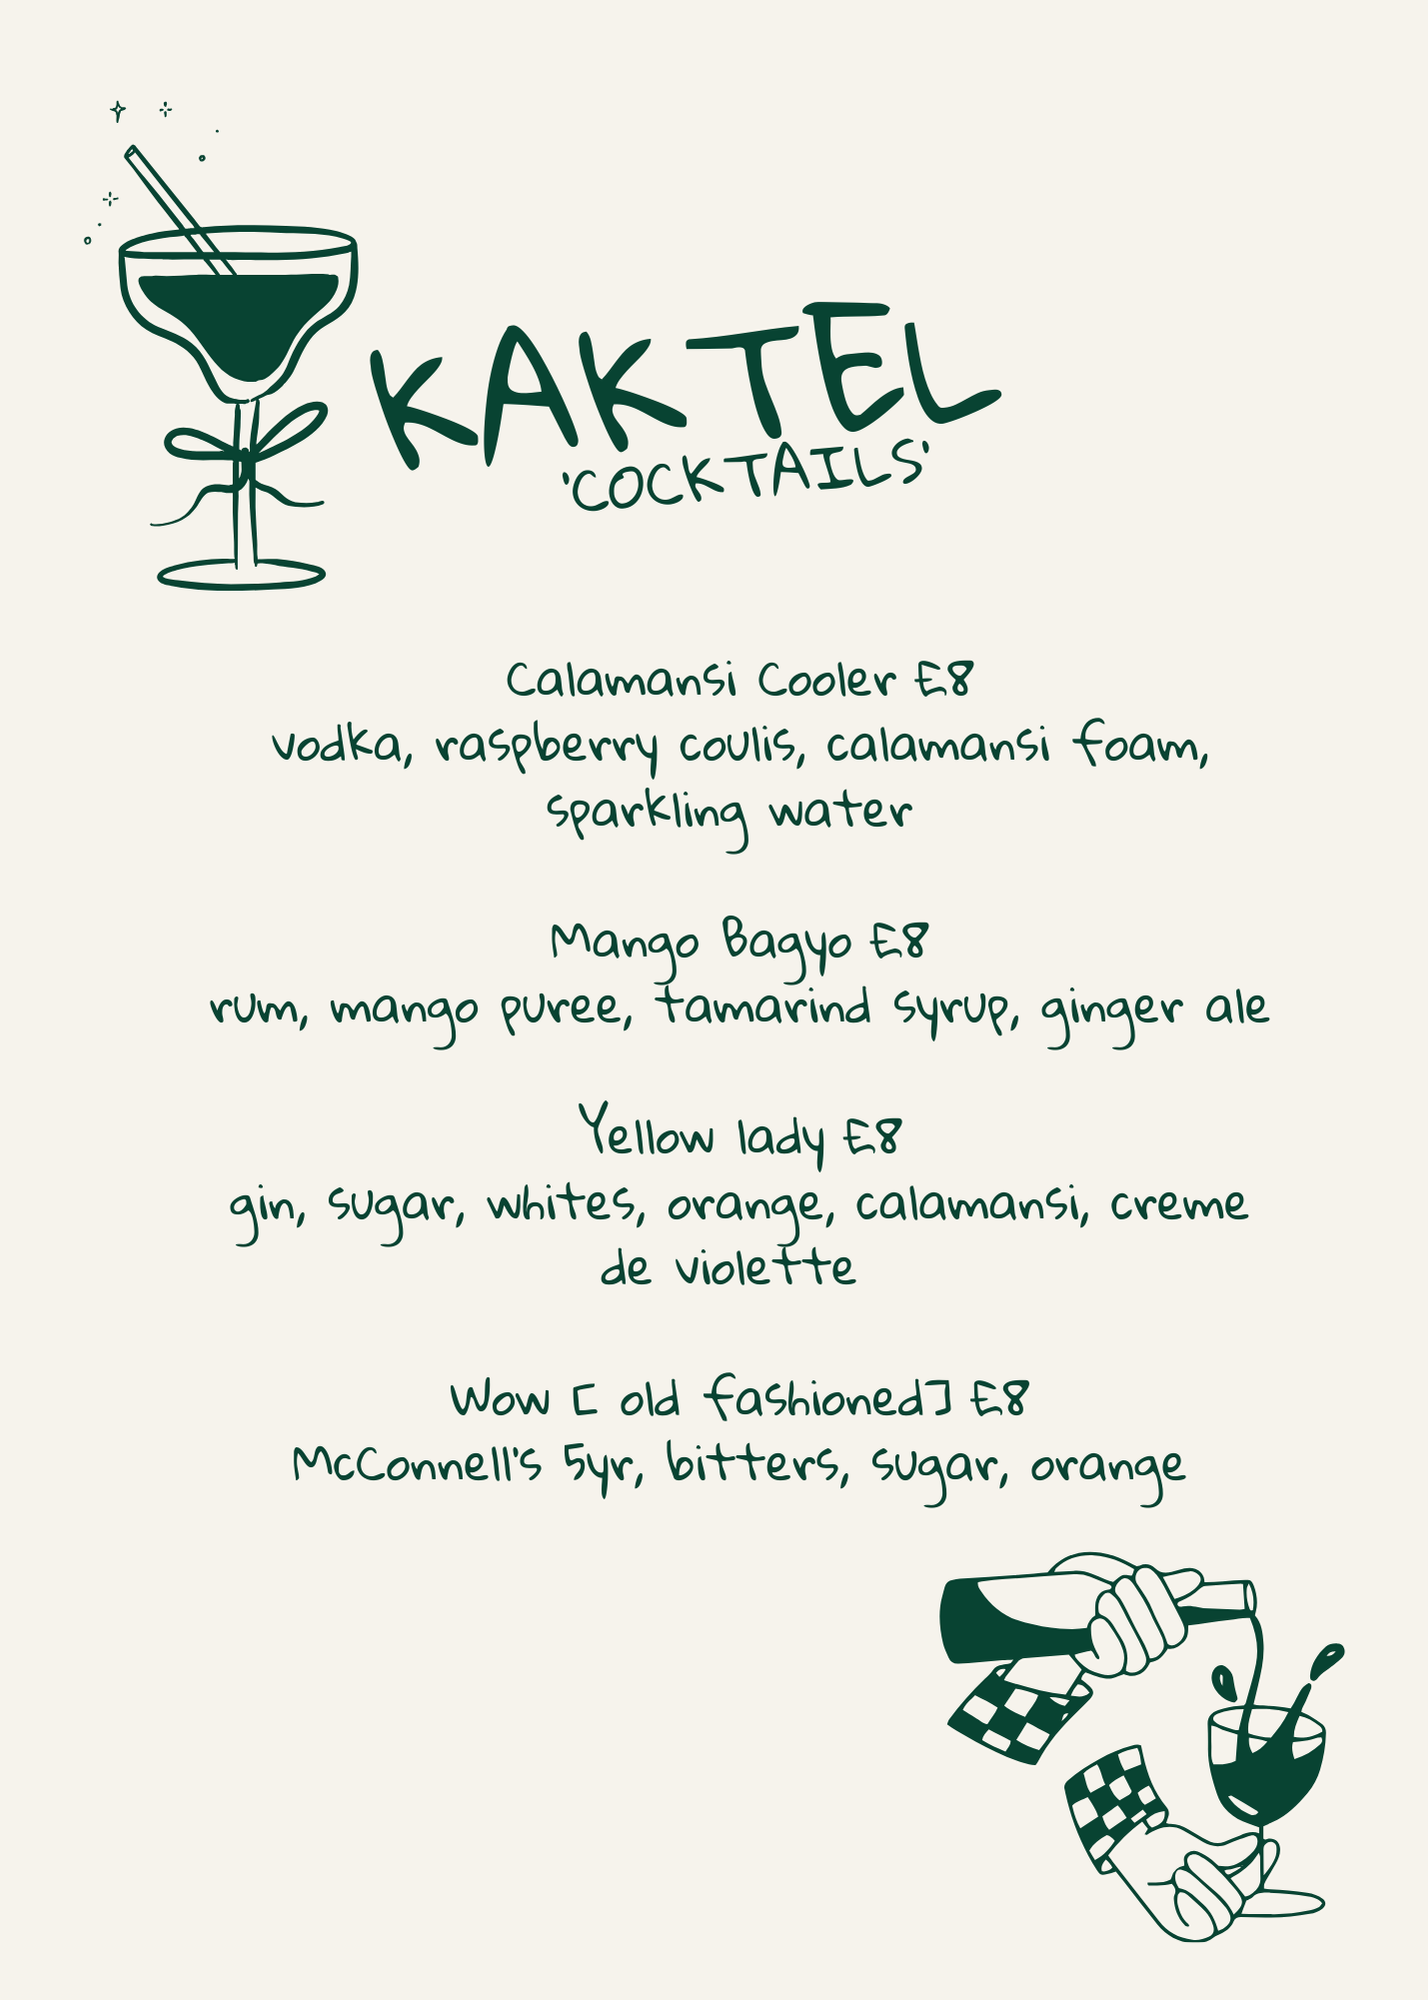 KAKTEL
'COCKTAILS'
Calamansi Cooler £8
vodka, raspberry coulis, calamansi foam,
sparkling water
Mango Bagyo £8
rum, mango puree, tamarind syrup, ginger ale
Yellow lady £8
gin, sugar, whites, orange, calamansi, creme
de violette
Wow [ old fashioned] £8
McConnell's 5yr, bitters, sugar, orange